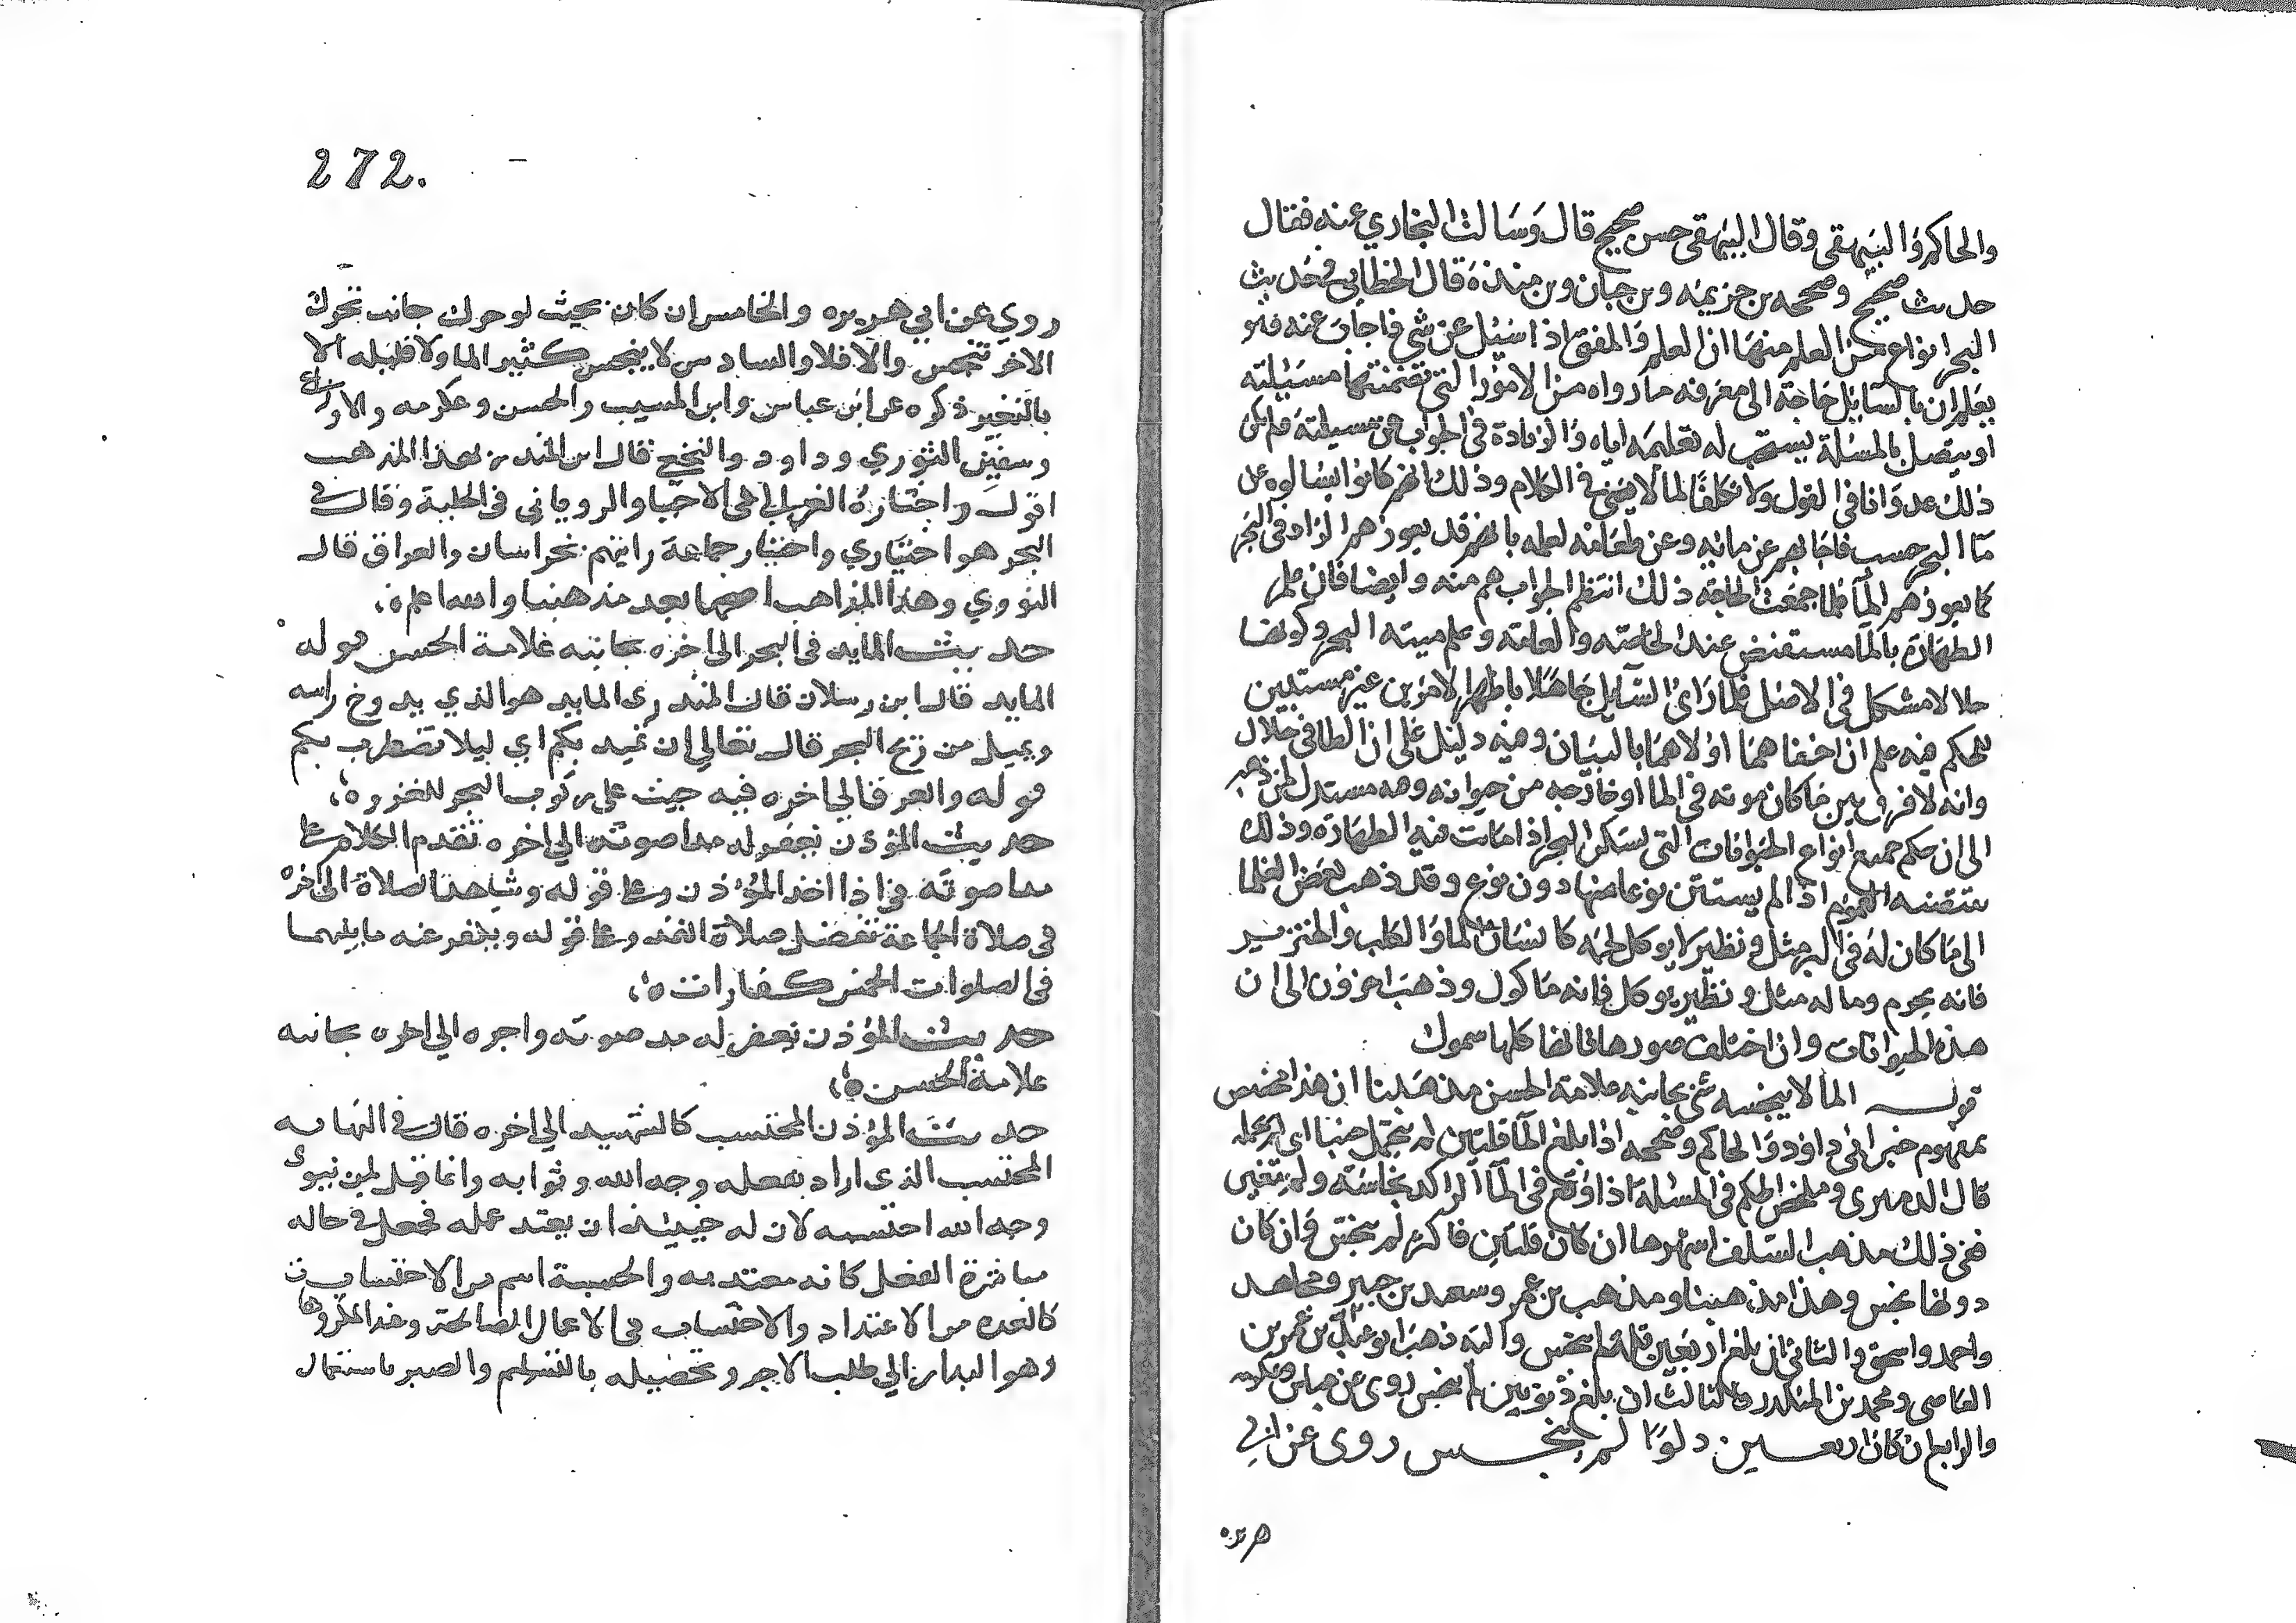 والحاكم والبيهقي وقال البيهقي حسن صحيح قال وسالت البخاري عنه فقال
حديث صحيح وصححه بن خزيمه وبن حبان وبن منذة قال الخطابي في حديث
البحر انواع من العلم منها ان العلم والمفتي اذا سئل عن شي فاجاب عنه فهو
يعلم ان بالسايل حاجة الى معرفه ما رواه من الامور التي تضمنتها مسئيلته
او يتصل بالمسئلة يستحب له تعليمه اياه والزيادة في الجواب عن مسيلته فلم يكن
ذلك عدوانا في القول ولا تكلفا لما لا يعني في الكلام وذلك انهم كانوا ايسالوه عن
ما البحر حسب فاجابهم عن مائه وعن طعامه لعلمه بانهم قد يعوزهم الزاد في البحر
كما يعوزهم الما فلما جمعت الحاجة ذلك انتظم الجواب هم منه وايضا فان علم
الطهارة بالما مستفيض عند الخاصته والعامته وعلم ميته البحر وكونها
حلالا مشكل في الاصل فلما راى السايل جاهلا باظهر الامرين غير مستبين
للحكم فيه علم ان اخفاهما اولاهما بالبيان وفيه دليل على ان الطافي حلال
وانه لا فرق بين ما كان موته في الما او خارجه من حيوانه وفيه مستدل لمن ذهب
الى ان حكم جميع انواع الحيوانات التي تسكن البحر اذا ماتت فيه الطهارة وذلك
بقضيه العموم اذ الم يستثن نوعا منها دون نوع وقد ذهب بعض العلما
الى ما كان له في البر مثل ونظير لا يوكل لحمه كانسان الما والكلب والخنزير
فانه يحرم وما له مثل ونظير يوكل فانه ماكول وذهب اخرون الى ان
هذه الحيوانات وان اختلف صورها فانها كلها سموك
قوله الما لا ينجسه شي بجانبه علامة الحسن مذهبنا ان هذا مخصص
بمفهوم خبر ابي داود والحاكم وصححه اذا بلغ الما قلتين لم يحتمل خبثا اي لم يحمله
قال الدميري وملخص الحكم في المسئلة اذا وقع في الما الراكد نجاسته ولم تغير
فمن ذلك مذهب السلف اشهرها ان كان قلتين فاكثر لم ينجس وان كان
دونها نجس وهذا مذهبنا ومذهب بن عمر وسعيد بن جبير ومجاهد
واحمد واسحق والثاني ان بلغ اربعين قلة لم ينجس واليه ذهب ابو عبد الله بن عمر بن
العاصي ومحمد بن المنكدر والثالث ان بلغ ذنوبين لم ينجس روى عن عباس وعكرمه
والرابع ان كان اربعين دلوا لم ينجس روى عن ابي
هريره
272.
روي عن ابي هريره والخامس ان كان بحيث لو حرك جانب تحرك
الاخر تنجس والا فلا والسادس لا ينجس كثير الما ولا قليله الا
بالتغير ذكره عن ابن عباس وابن المسيب والحسن وعكرمه والاوزاعي
وسفين الثوري وداود والنخعي قال ابن المنذر بهذا المذهب
اقول واختاره الغزالي في الاحيا والروياني في الحلية وقال في
البحر هو اختياري واختيار جماعة رايتهم بخراسان والعراق قال
النووي وهذا المذاهب اصحها بعد مذهبنا والله اعلم ه،
حديث المايد في البحر الى اخره بجانبه علامة الحسن قوله
المايد قال ابن رسلان قال المنذري المايد هو الذي يدوخ راسه
ويميل من ريح البحر قال تعالي ان تميد بكم اي ليلا تضطرب بكم
قوله والعرق الي اخره فيه حيث على ركوب البحر للغزو ه،
حديث المؤذن يغفر له مدا صوته الي اخره تقدم الكلام على
مدا صوته في اذا اخذ المؤذن وعلى قوله وشاهد الصلاة الى اخره
في صلاة الجماعة تفضل صلاة الفذ وعلى قوله ويغفر عنه ما بينهما
في الصلوات الخمس كفارات ه،
حديث المؤذن يغفر له مد صوته واجره الي اخره بجانبه
علامة الحسن ه،
حديث المؤذن المحتسب كالشهيد الي اخره قال في النهايه
المحتسب الذي اراد بفعله وجه الله وثوابه وانما قيل لمن ينوي
وجه الله احتسبه لان له حينيذ ان يعتد عمله فجعل في حاله
مباشرة الفعل كانه معتد به والحسبة اسم من الاحتساب
كالعده من الاعتداد والاحتساب في الاعمال الصالحة وعند المكروهات
وهو البدار الي طلب الاجر وتحصيله بالتسليم والصبر باستعمال